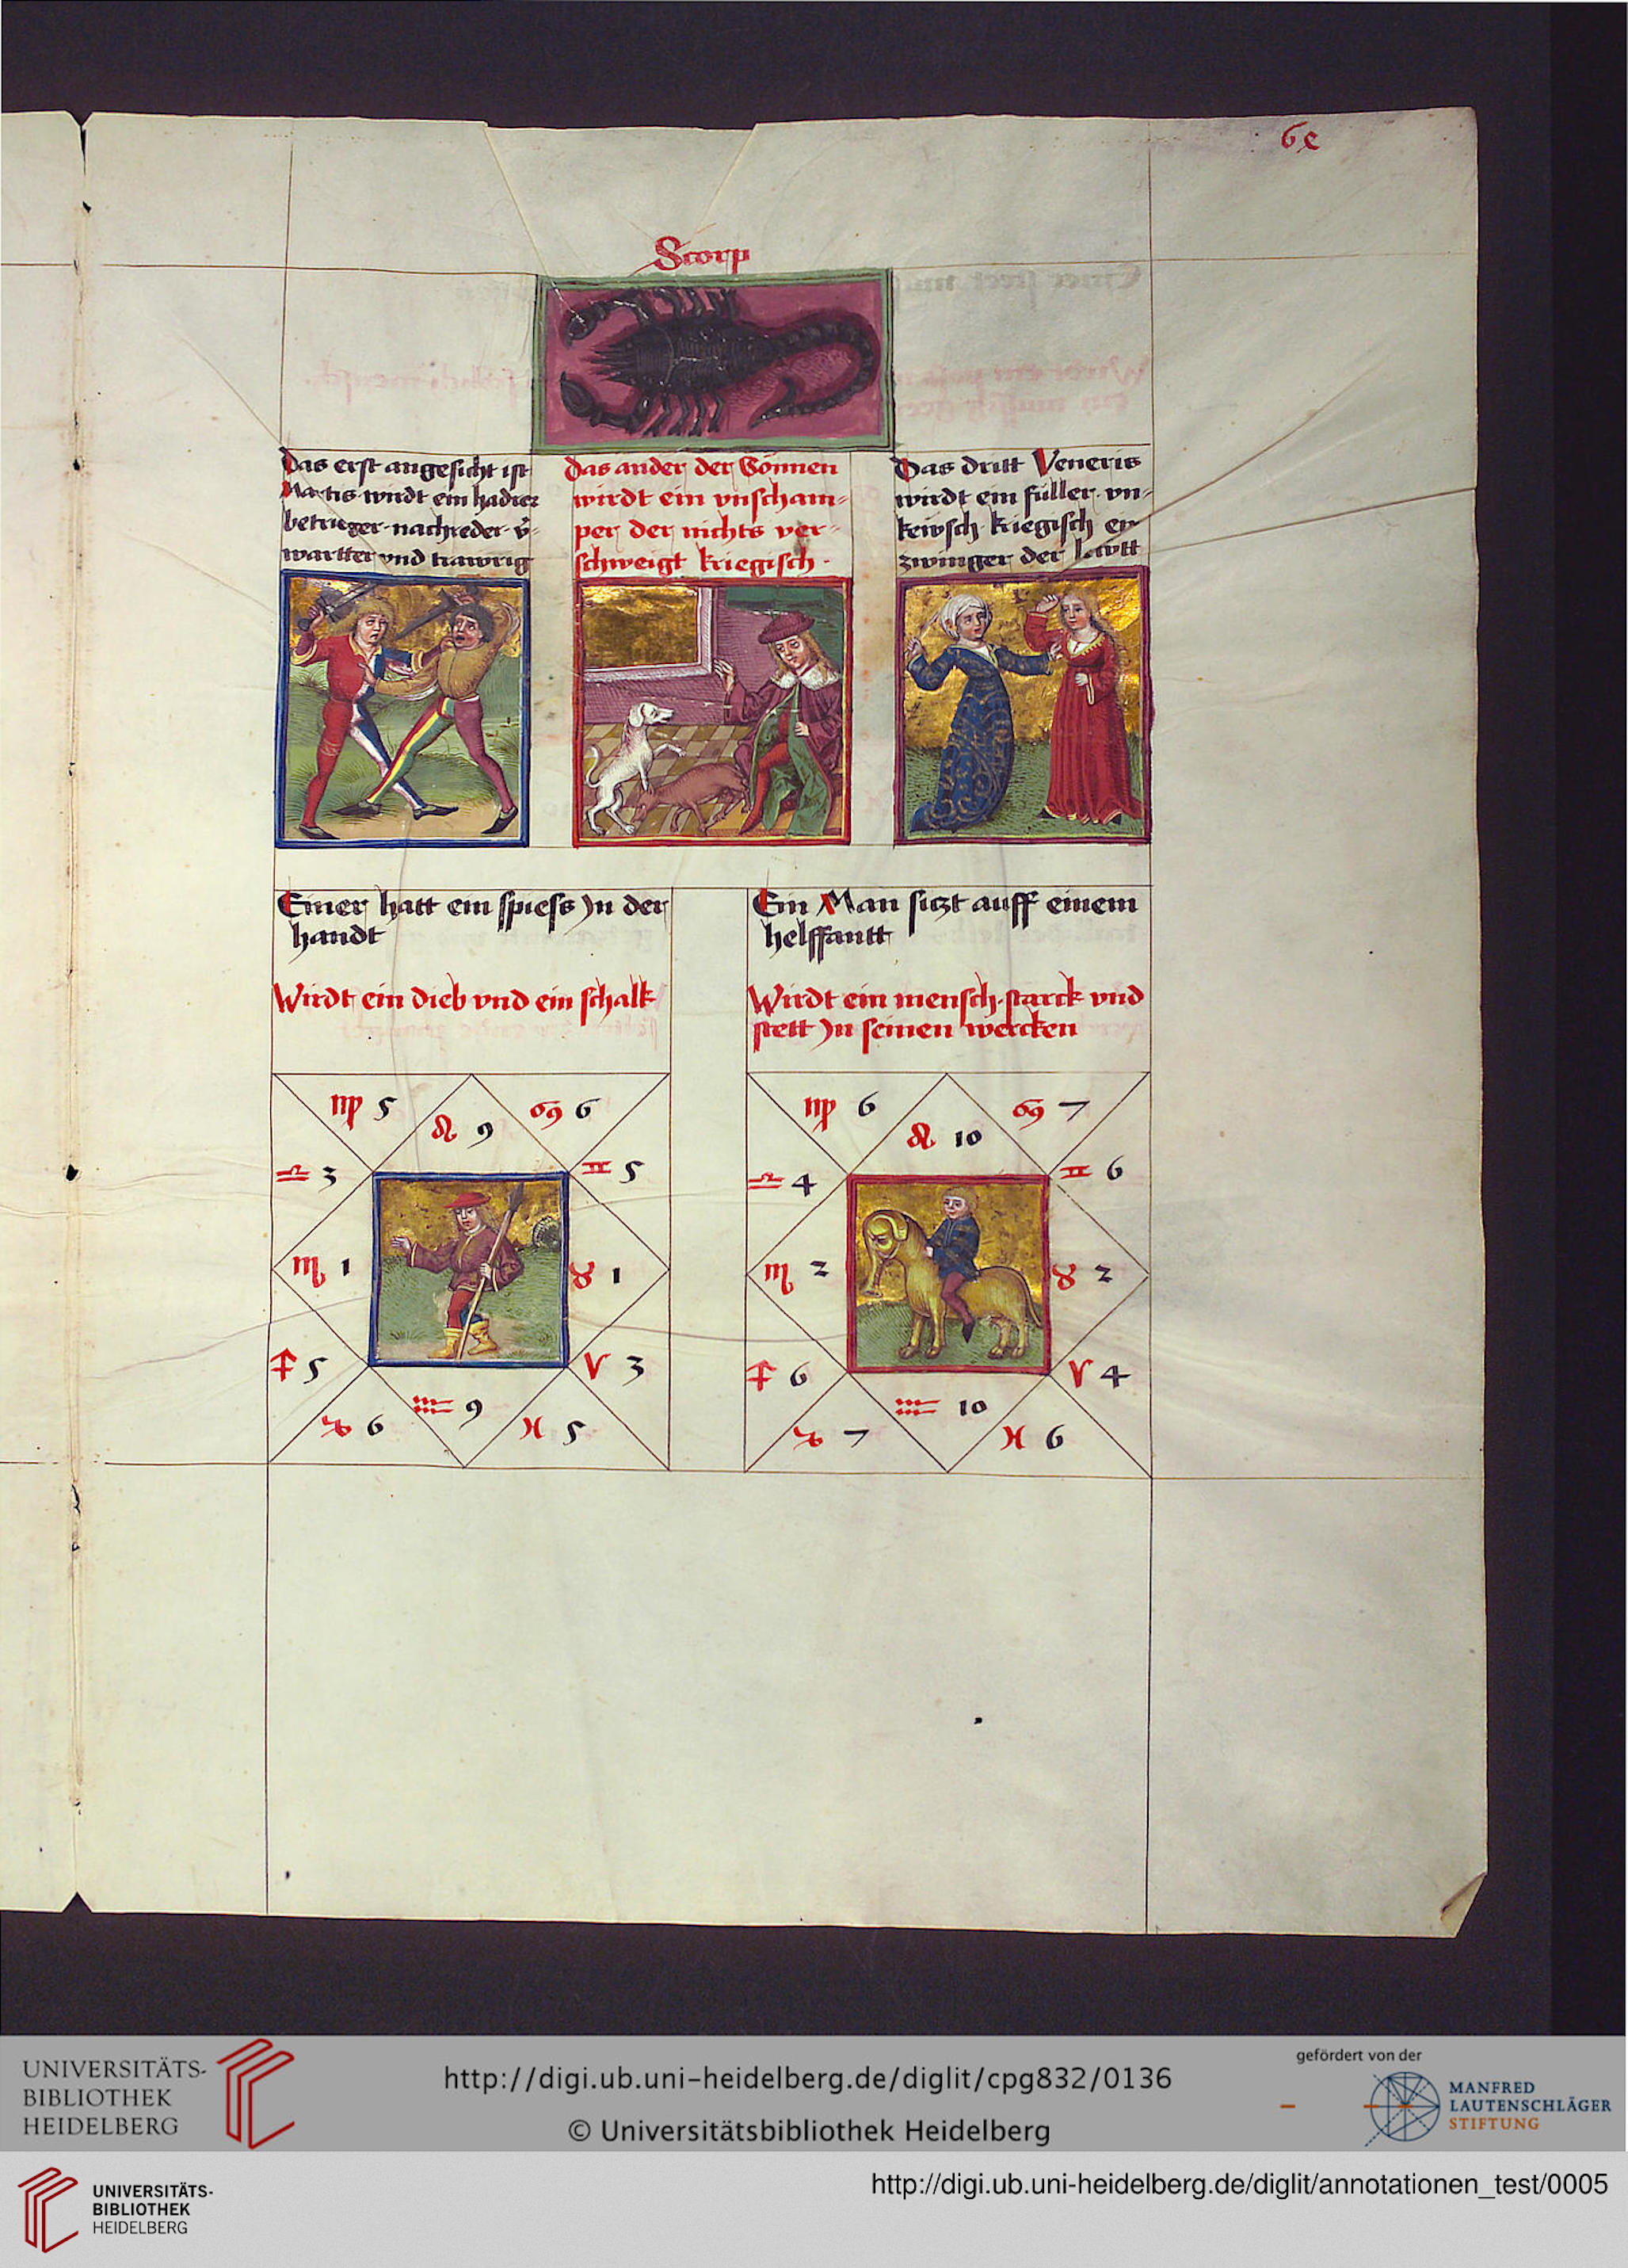 6e
Scorp
Das erst angesicht ist
Martis wirdt ein hadrer
betrieger nachreder v̈-
wartter vnd trawrig
das ander der Sonnen
wirdt ein vnscham-
per der nichts ver-
schweigt kriegisch
Das dritt Veneris
wirdt ein füller vn-
kewsch kriegisch ein
zwinger der lewtt
Einer hatt ein spiess Jn der
handt
Wirdt ein dieb vnd ein schalk
Ein Man siczt auff einem
helffantt
Wirdt ein mensch starck vnd
stett Jn seinen wercken
♍ 5
♌ 9
♋ 6
♎ 3
♊ 5
♏ 1
♉ 1
♐ 5
♈ 3
♑ 6
♒ 9
♓ 5
♍ 6
♌ 10
♋ 7
♎ 4
♊ 6
♏ 2
♉ 2
♐ 6
♈ 4
♑ 7
♒ 10
♓ 6
UNIVERSITÄTS-
BIBLIOTHEK
HEIDELBERG
http://digi.ub.uni-heidelberg.de/diglit/cpg832/0136
© Universitätsbibliothek Heidelberg
gefördert von der
MANFRED
LAUTENSCHLÄGER
STIFTUNG
UNIVERSITÄTS-
BIBLIOTHEK
HEIDELBERG
http://digi.ub.uni-heidelberg.de/diglit/annotationen_test/0005